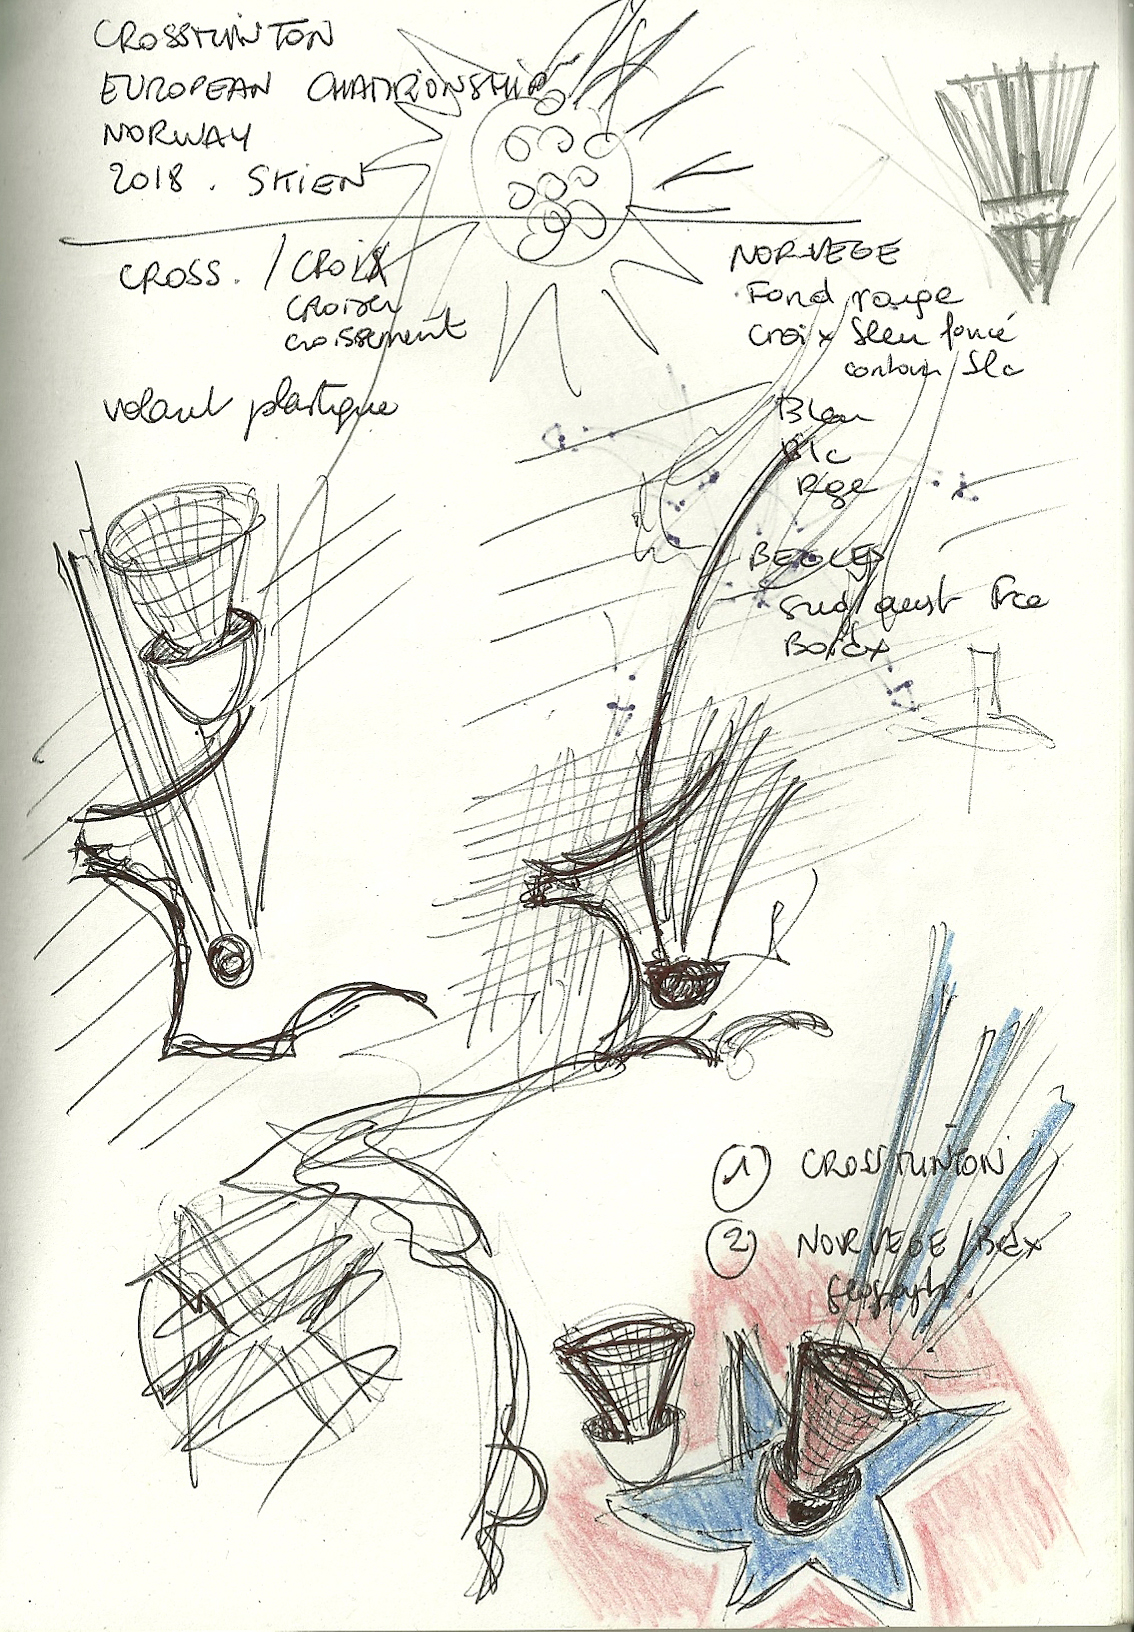 CROSSMINTON
EUROPEAN CHAMPIONSHIP
NORWAY
2018 . SKIEN
CROSS. / CROIX
croiser
croissement
volant plastique
NORVEGE
Fond rouge
Croix bleu foncé
contour blc
Bleu
Blc
Rge
BEGLES
sud ouest Fce
Bordx
1 CROSSMINTON
2 NORVEGE / Bdx
geograph.